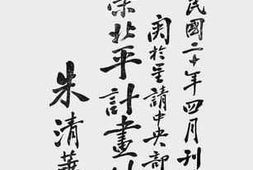 民國二十年四月刊
関於呈請中央部
北平計畫
朱清華